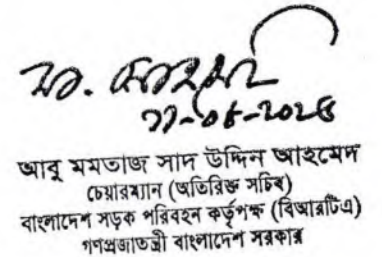 আবু মমতাজ সাদ উদ্দিন আহমেদ
চেয়ারম্যান (অতিরিক্ত সচিব)
বাংলাদেশ সড়ক পরিবহন কর্তৃপক্ষ (বিআরটিএ)
গণপ্রজাতন্ত্রী বাংলাদেশ সরকার